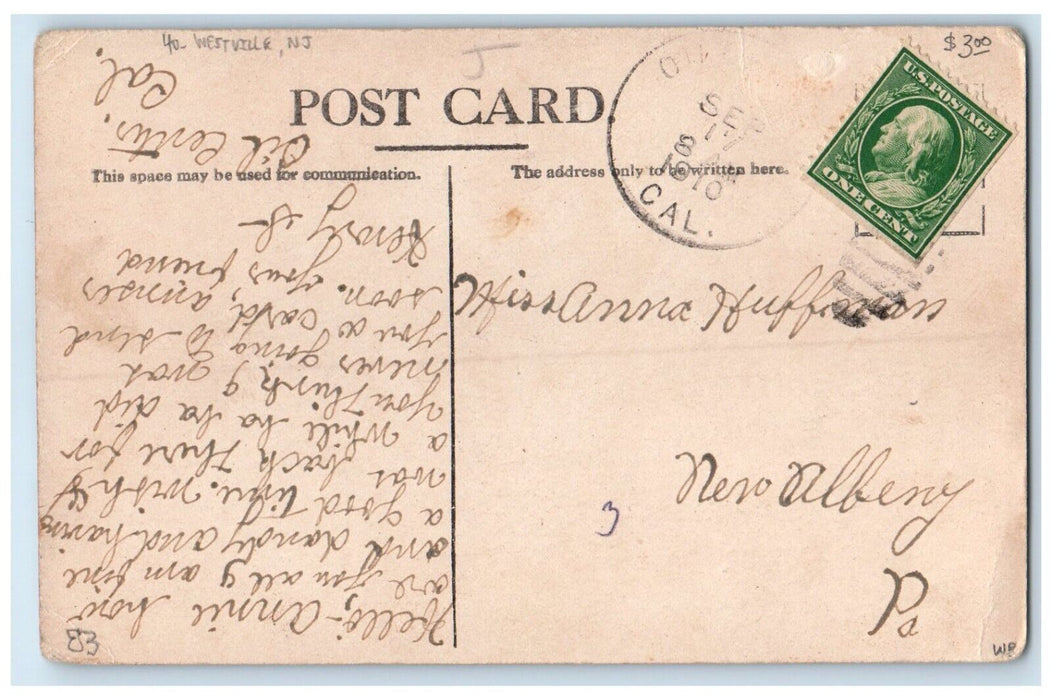 40- WESTVILLE, NJ
J
$3.00
POST CARD.
This space may be used for communication.
The address only to be written here.
SEP
17
8 AM
1910
CAL.
U.S. POSTAGE
ONE CENT
Miss Anna Huffman
New Albeny
Pa
3
Hello, Annie how
are you all y am fine
and dandy and having
a good time. wish y
was back there for
a while ha ha did
you think y was
never going to send
you a card, answer
soon. your friend
Henry
Oil Center,
Cal.
E3
WB